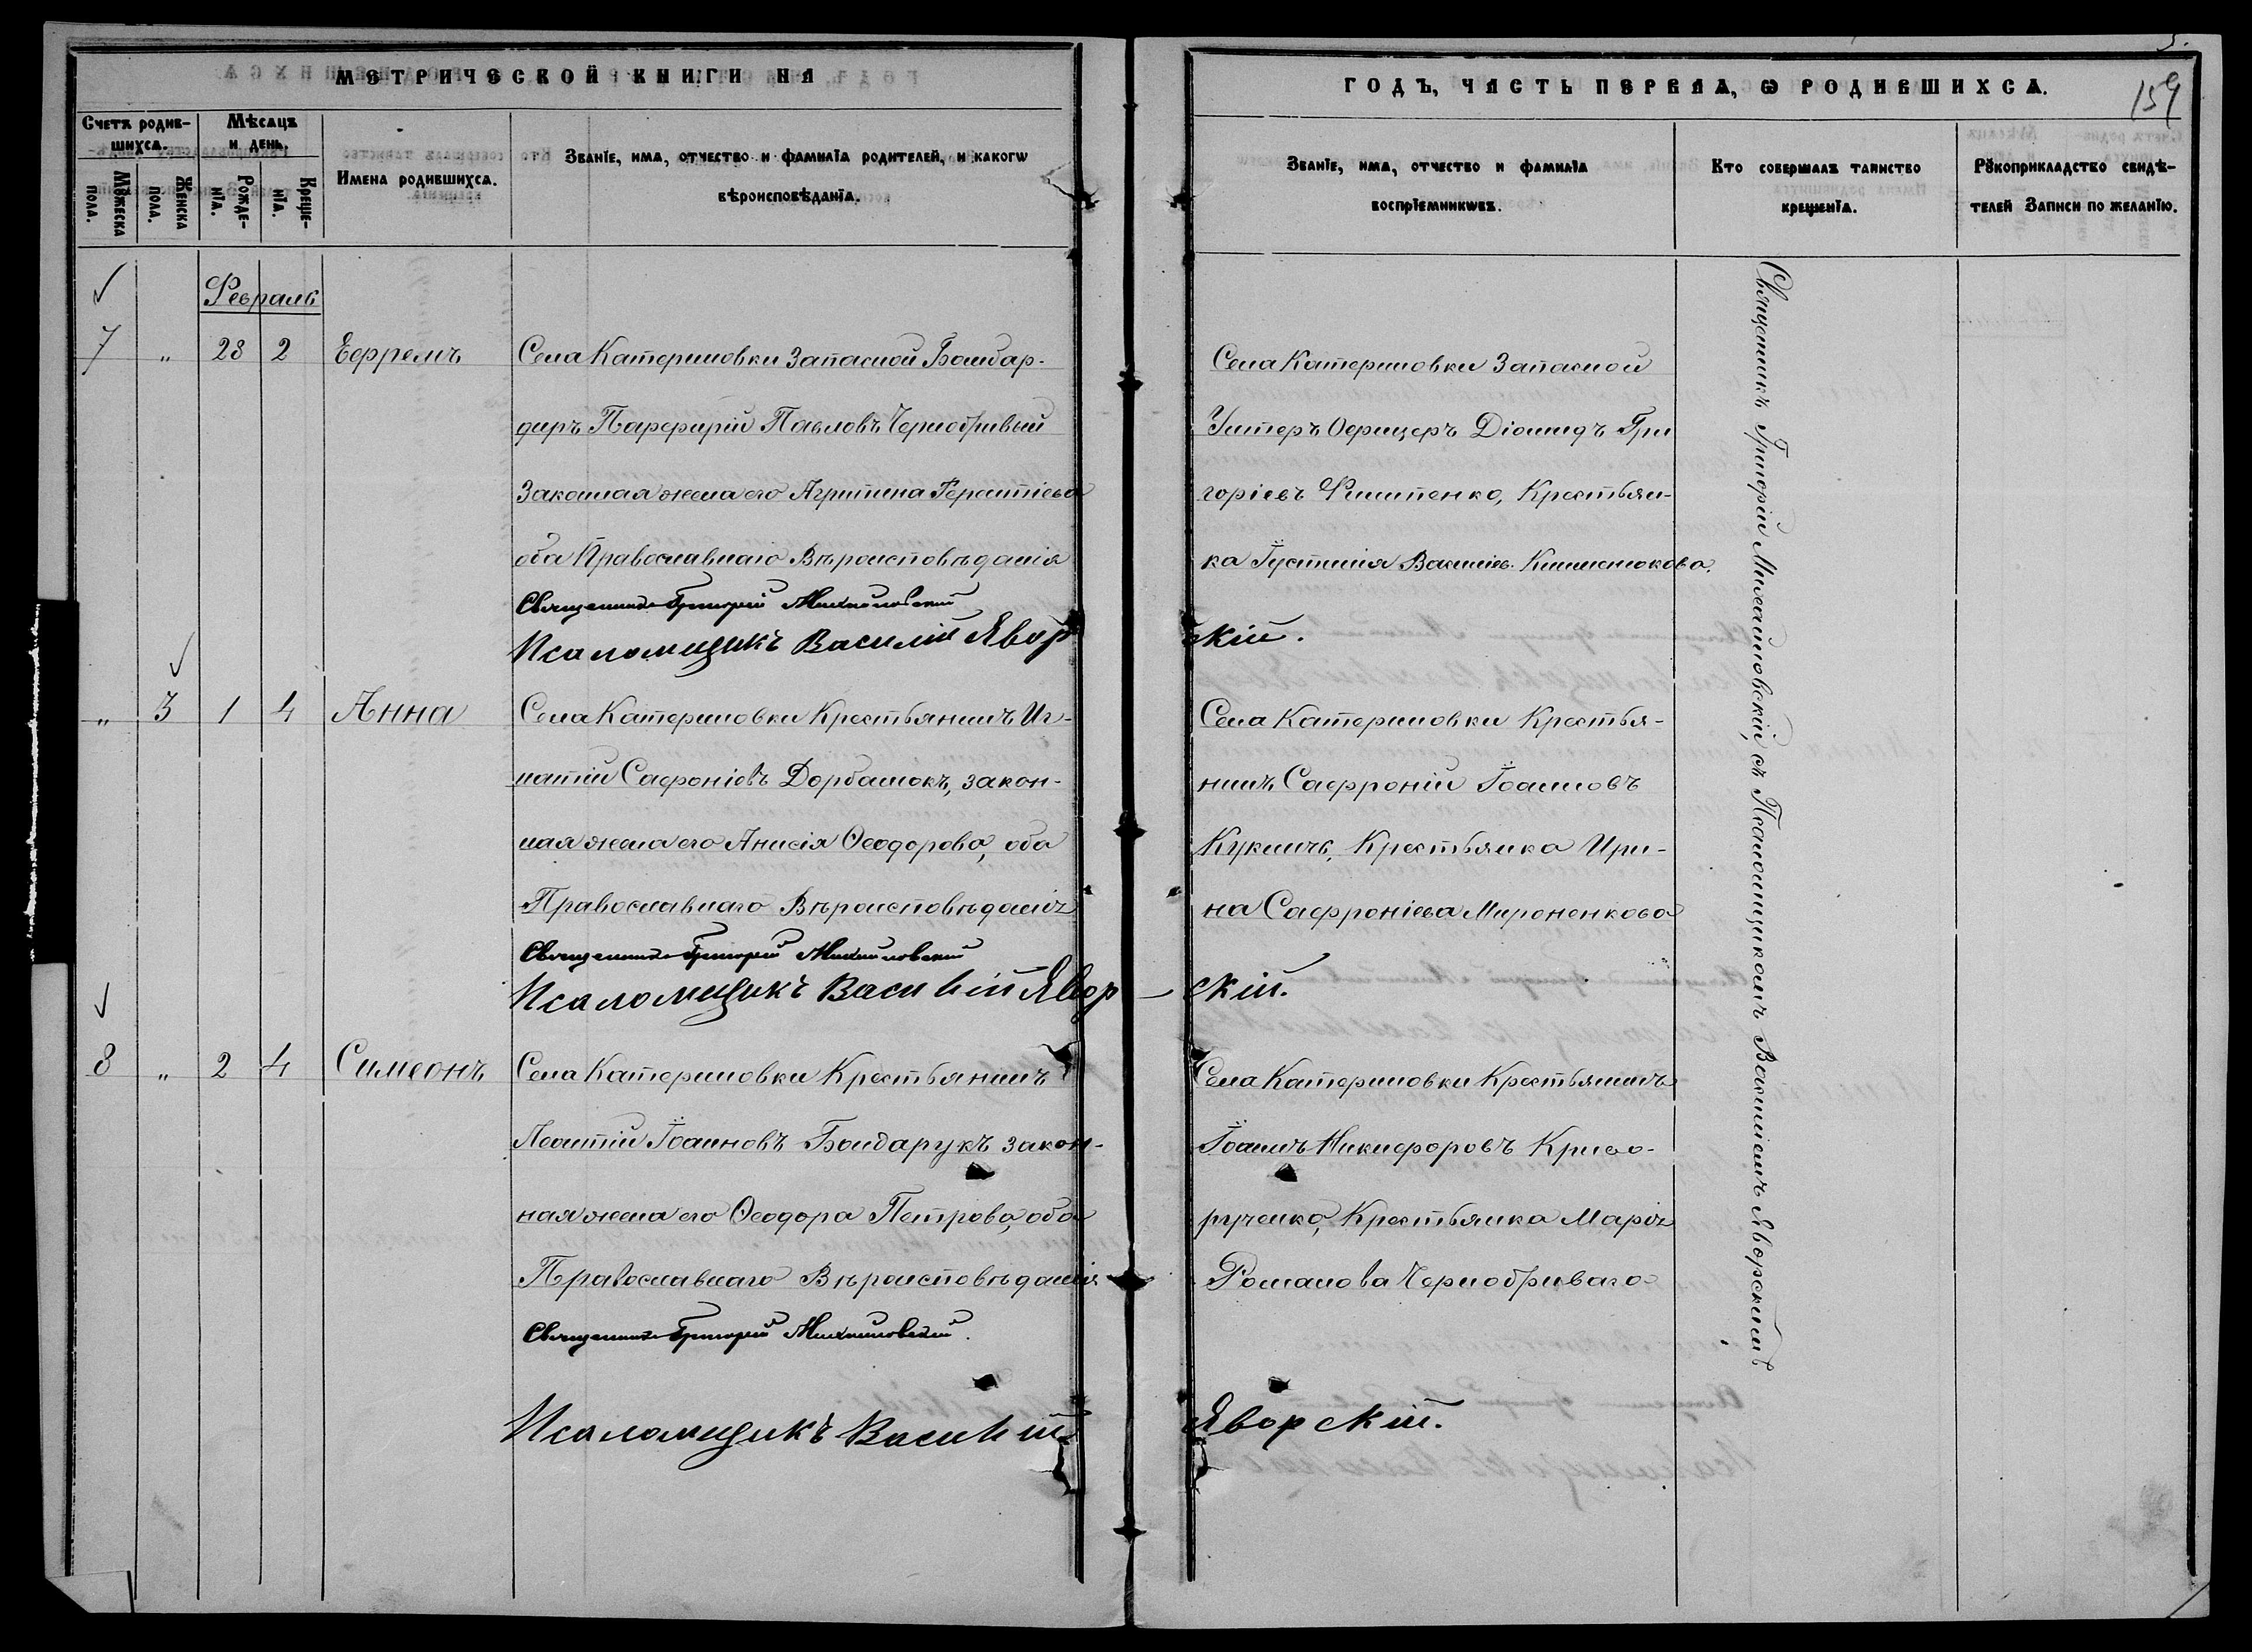 МЕТРИЧЕСКОЙ КНИГИ НА
ГОДЪ, ЧАСТЬ ПЕРВАЯ, Ѡ РОДИВШИХСѦ.
159
Счетъ родив-
шихсѧ.
Мѣсѧцъ
и день.
Мꙋжеска
пола.
Женска
пола.
Рожде-
нїѧ.
Креще-
нїѧ.
Имена родившихсѧ.
Званїе, имѧ, отчество и фамилїѧ родителей, и какогѡ
вѣроисповѣданїѧ.
Званїе, имѧ, отчество и фамилїѧ
воспрїемникѡвъ.
Кто совершалъ таинство
крещенїѧ.
Рꙋкоприкладство свидѣ-
телей записи по желанїю.
Февраль
7 " 28 2 Ефремъ
Села Катериновки Запасной Бомбар-
диръ Парфирій Павловъ Чернобривый
Законная жена его Агрипина Терентіева
оба Православнаго Вѣроисповѣданія
Священникъ Григорій Михайловскій
Псаломщикъ Василій Явор
скій.
Села Катериновки Запасной
Унтеръ Офицеръ Діомидъ Гри
горіевъ Филипенко, Крестьян-
ка Іустинія Василіев.
" 3 1 4 Анна
Села Катериновки Крестьянинъ Иг-
натій Сафоніевъ Дорбанюкъ, закон-
ная жена его Анисія Ѳеодорова, оба
Православнаго Вѣроисповѣданія
Священникъ Григорій Михайловскій
Псаломщикъ Василій Явор-
скій.
Села Катериновки Крестья-
нинъ Сафроній Іоанновъ
Кукинъ, Крестьянка Ири-
на Сафроніева Мироненкова
8 " 2 4 Симеонъ
Села Катериновки Крестьянинъ
Леонтій Іоанновъ Бондарукъ закон-
ная жена его Ѳеодора Петрова, оба
Православнаго Вѣроисповѣданія
Священникъ Григорій Михайловскій.
Псаломщикъ Василій
Яворскій.
Села Катериновки Крестьянинъ
Іоаннъ Никифоровъ Криво-
рученко, Крестьянка Марія
Романова Чернобриваго
Священникъ Григорій Михайловскій съ Псаломщикомъ Василіемъ Яворскимъ